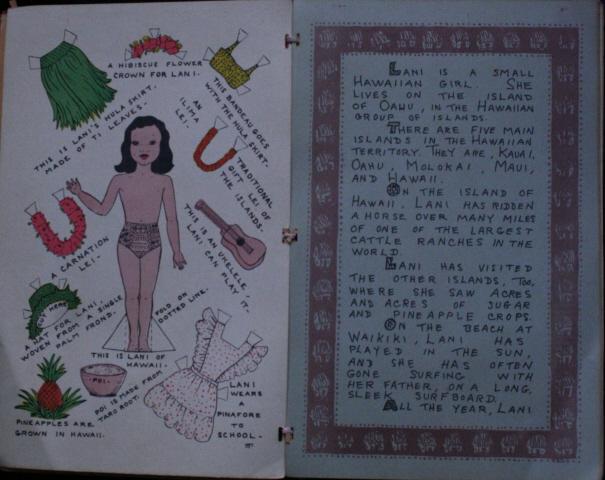 A HIBISCUS FLOWER
CROWN FOR LANI.
THIS IS LANI'S HULA SKIRT.
MADE OF TI LEAVES.
THIS BANDEAU GOES
WITH THE HULA SKIRT.
AN
ILIMA
LEI.
TRADITIONAL
GIFT LEI OF
THE ISLANDS.
A CARNATION
LEI.
THIS IS AN UKELELE.
LANI CAN PLAY IT.
A HAT FOR LANI
WOVEN FROM A SINGLE
PALM FROND.
FOLD ON
DOTTED LINE.
THIS IS LANI OF
HAWAII.
POI
POI IS MADE FROM
TARO ROOT.
PINEAPPLES ARE
GROWN IN HAWAII.
LANI
WEARS
A
PINAFORE
TO
SCHOOL.
LANI IS A SMALL
HAWAIIAN GIRL. SHE
LIVES ON THE ISLAND
OF OAHU, IN THE HAWAIIAN
GROUP OF ISLANDS.
THERE ARE FIVE MAIN
ISLANDS IN THE HAWAIIAN
TERRITORY. THEY ARE, KAUAI,
OAHU, MOLOKAI, MAUI,
AND HAWAII.
ON THE ISLAND OF
HAWAII, LANI HAS RIDDEN
A HORSE OVER MANY MILES
OF ONE OF THE LARGEST
CATTLE RANCHES IN THE
WORLD.
LANI HAS VISITED
THE OTHER ISLANDS, TOO,
WHERE SHE SAW ACRES
AND ACRES OF SUGAR
AND PINEAPPLE CROPS.
ON THE BEACH AT
WAIKIKI, LANI HAS
PLAYED IN THE SUN,
AND SHE HAS OFTEN
GONE SURFING WITH
HER FATHER, ON A LONG,
SLEEK SURFBOARD.
ALL THE YEAR, LANI